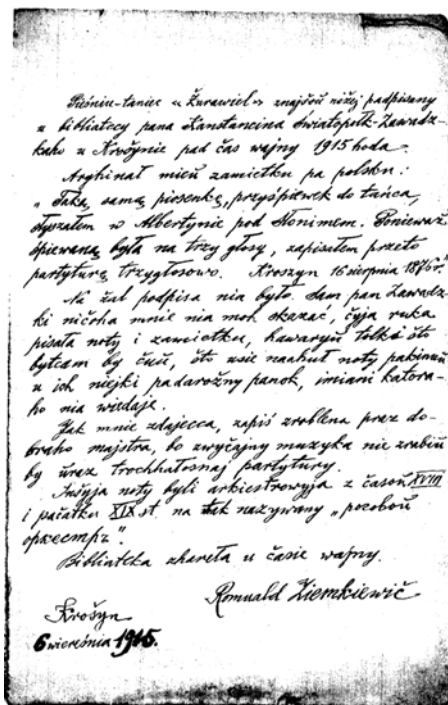 Pieśniu-taniec «Żurawiel» znajšoŭ niżej padpisany
u bibliatecy pana Kanstancina Światopołk-Zawadz-
kaho u Krošynie pad čas wajny 1915 hoda.
Aryhinał mieŭ zamietku pa polsku:
„Taką samą piosenkę, przyśpiewek do tańca,
słyszałem w Albertynie pod Słonimem. Ponieważ
śpiewaną była na trzy głosy, zapisałem przeto
partyturą trzygłosowo. Kroszyn 16 sierpnia 1876 r."
Na żal podpisa nia było. Sam pan Zawadz-
ki ničoha mnie nia moh skazać, čyja ruka
pisała noty i zamietku, hawaryŭ tolki što
bytcam by čuŭ, što usie naahuł noty pakinuŭ
u ich niejki padarożny panok, imiani katora-
ho nia wiedaje.
Jak mnie zdajecca, zapiś zroblena praz do-
braho majstra, bo zwyčajny muzyka nie zrabiŭ
by uraz trochhałosnaj partytury.
Inšyja noty byli arkiestrowyja z časoŭ XVIII
i pačatku XIX st. na tak nazywany „роговой
оркестръ".
Bibliateka zhareła u časie wajny.
Romuald Ziemkiewič
Krošyn
6 wierešnia 1915.